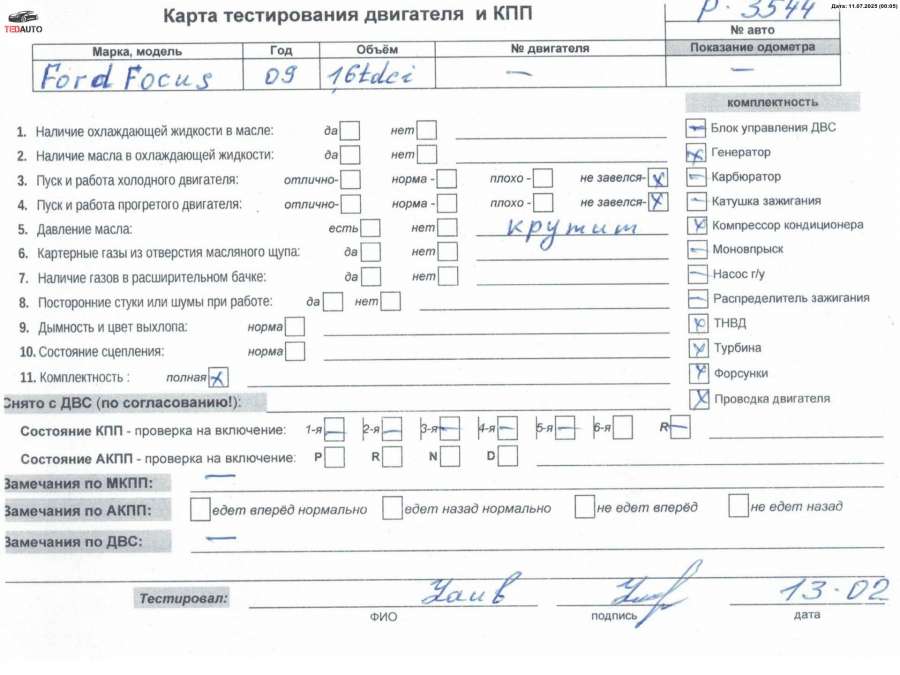 Дата: 11.07.2025 (00:05)
TEDAUTO
Карта тестирования двигателя и КПП
Р. 3544
№ авто
Марка, модель Год Объём № двигателя Показание одометра
Ford Focus 09 1,6tdci — —
комплектность
1. Наличие охлаждающей жидкости в масле: да нет
2. Наличие масла в охлаждающей жидкости: да нет
3. Пуск и работа холодного двигателя: отлично- норма - плохо - не завелся- x
4. Пуск и работа прогретого двигателя: отлично- норма - плохо - не завелся- x
5. Давление масла: есть нет крутит
6. Картерные газы из отверстия масляного щупа: да нет
7. Наличие газов в расширительном бачке: да нет
8. Посторонние стуки или шумы при работе: да нет
9. Дымность и цвет выхлопа: норма
10. Состояние сцепления: норма
11. Комплектность : полная x
— Блок управления ДВС
x Генератор
— Карбюратор
— Катушка зажигания
x Компрессор кондиционера
— Моновпрыск
— Насос г/у
— Распределитель зажигания
x ТНВД
x Турбина
x Форсунки
x Проводка двигателя
Снято с ДВС (по согласованию!):
Состояние КПП - проверка на включение: 1-я — 2-я — 3-я — 4-я — 5-я — 6-я R —
Состояние АКПП - проверка на включение: P R N D
Замечания по МКПП: —
Замечания по АКПП: едет вперёд нормально едет назад нормально не едет вперёд не едет назад
Замечания по ДВС: —
Тестировал: 13.02
ФИО подпись дата